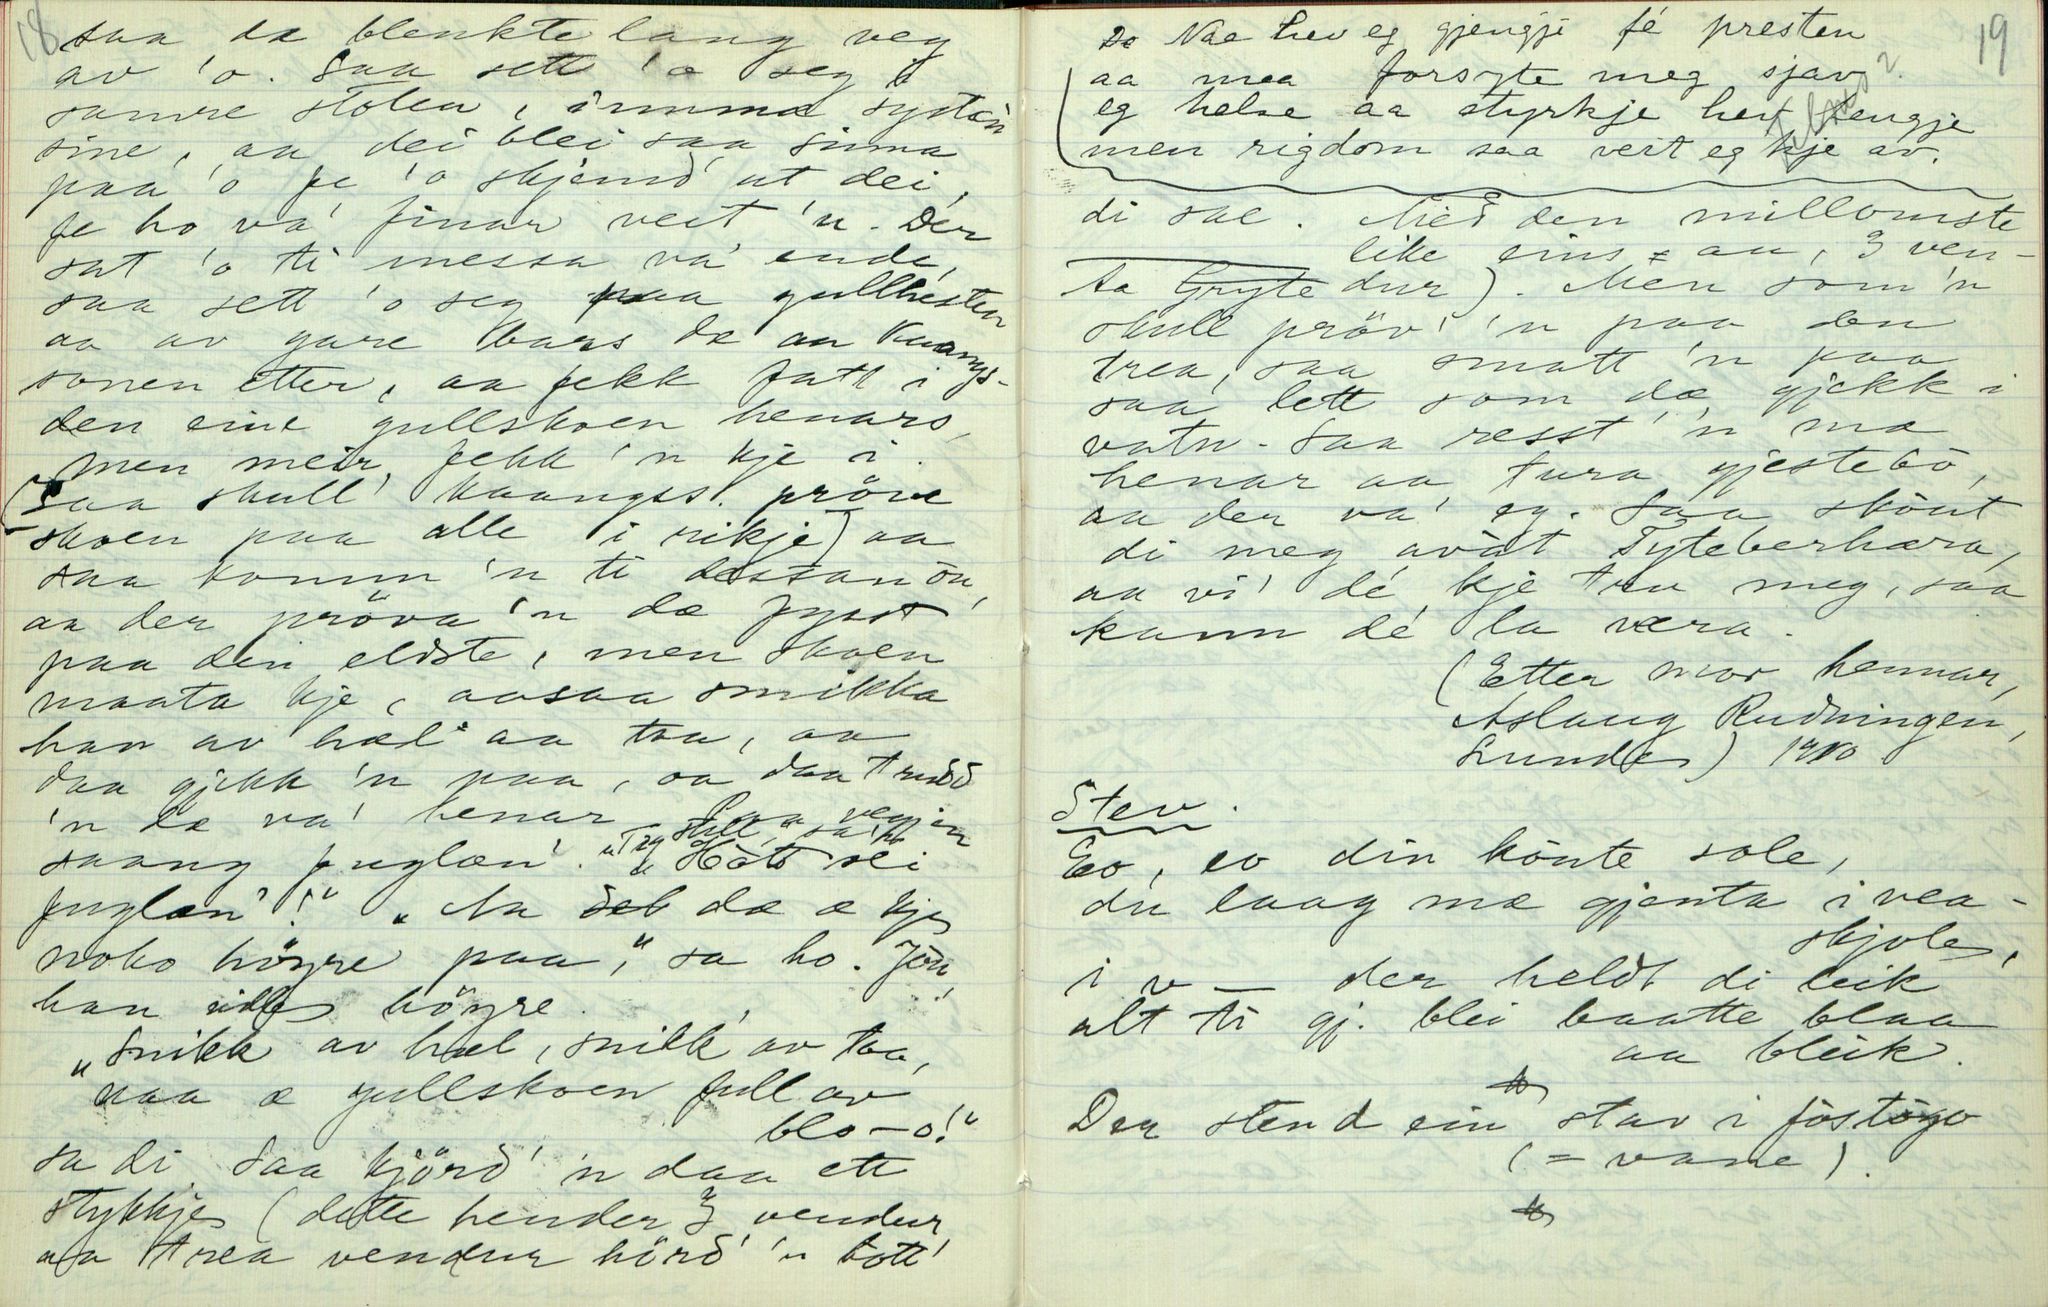 18
saa dæ blenkte lang veg
av 'o. Saa sett 'o seg i
samre stolen, imma systan
sine, aa dei blei saa sinna
paa 'o fe 'o skjemd' ut dei,
fe ho va' finar veit 'n. Der
sat 'o ti messa va' enda,
saa sett 'o seg paa gullhesten
aa av gare bars dæ aa Kaangs-
sonen etter, aa fekk fatt i
den eine gullskoen henars,
men meir fekk 'n kje i.
(Saa skull' kaangss. pröve
skoen paa alle i rikje) aa
saa komm 'n ti dessan öu,
aa der pröva 'n dæ fysst
paa den eldste, men skoen
maata kje, aasaa snikka
han av hæl aa taa, aa
daa gjekk 'n paa, aa daa trudd
'n dæ va' henar. Paa vegjen
saang fuglæn'. "Teg still, sa 'n
"Höte sei
fuglæn'!" "Aa dæ æ kje
noko höyre paa," sa ho. Jöu,
han vilde höyre.
"Snikk av hæl, snikk av taa,
naa æ gullskoen full av
blo—o!"
sa di Saa kjörd' 'n daa ett
stykkje (dette hender 3 vendur
aa trea vendur hörd' 'n bött'
19
Naa hev eg gjengje fé presten
aa maa forsyte meg sjav
eg helse aa styrkje hev tengje
men rigdom saa veit eg kje av.
di sae. Med den millomste
like eins aa, 3 ven-
ta Gryte dur). Men som 'n
skull pröv' 'n paa den
trea, saa smatt 'n paa
saa lett som dæ gjekk i
vatn. Saa resst 'n mæ
henar aa tura gjestebö,
aa der va' eg. Saa sköut
di meg avát Tyteberbæra,
aa vi' dé kje tru meg, saa
kann dé la væra.
(Etter mor hennar,
Aslaug Rudningen,
Lunde) 1910
Stev.
Eo, eo din könte sole,
du laag mæ gjenta i vea-
skjole,
i v — der heldt di leik
alt ti gj. blei baatte blaa
aa bleik.
Der stend ein stav i föstögo
(= vane).